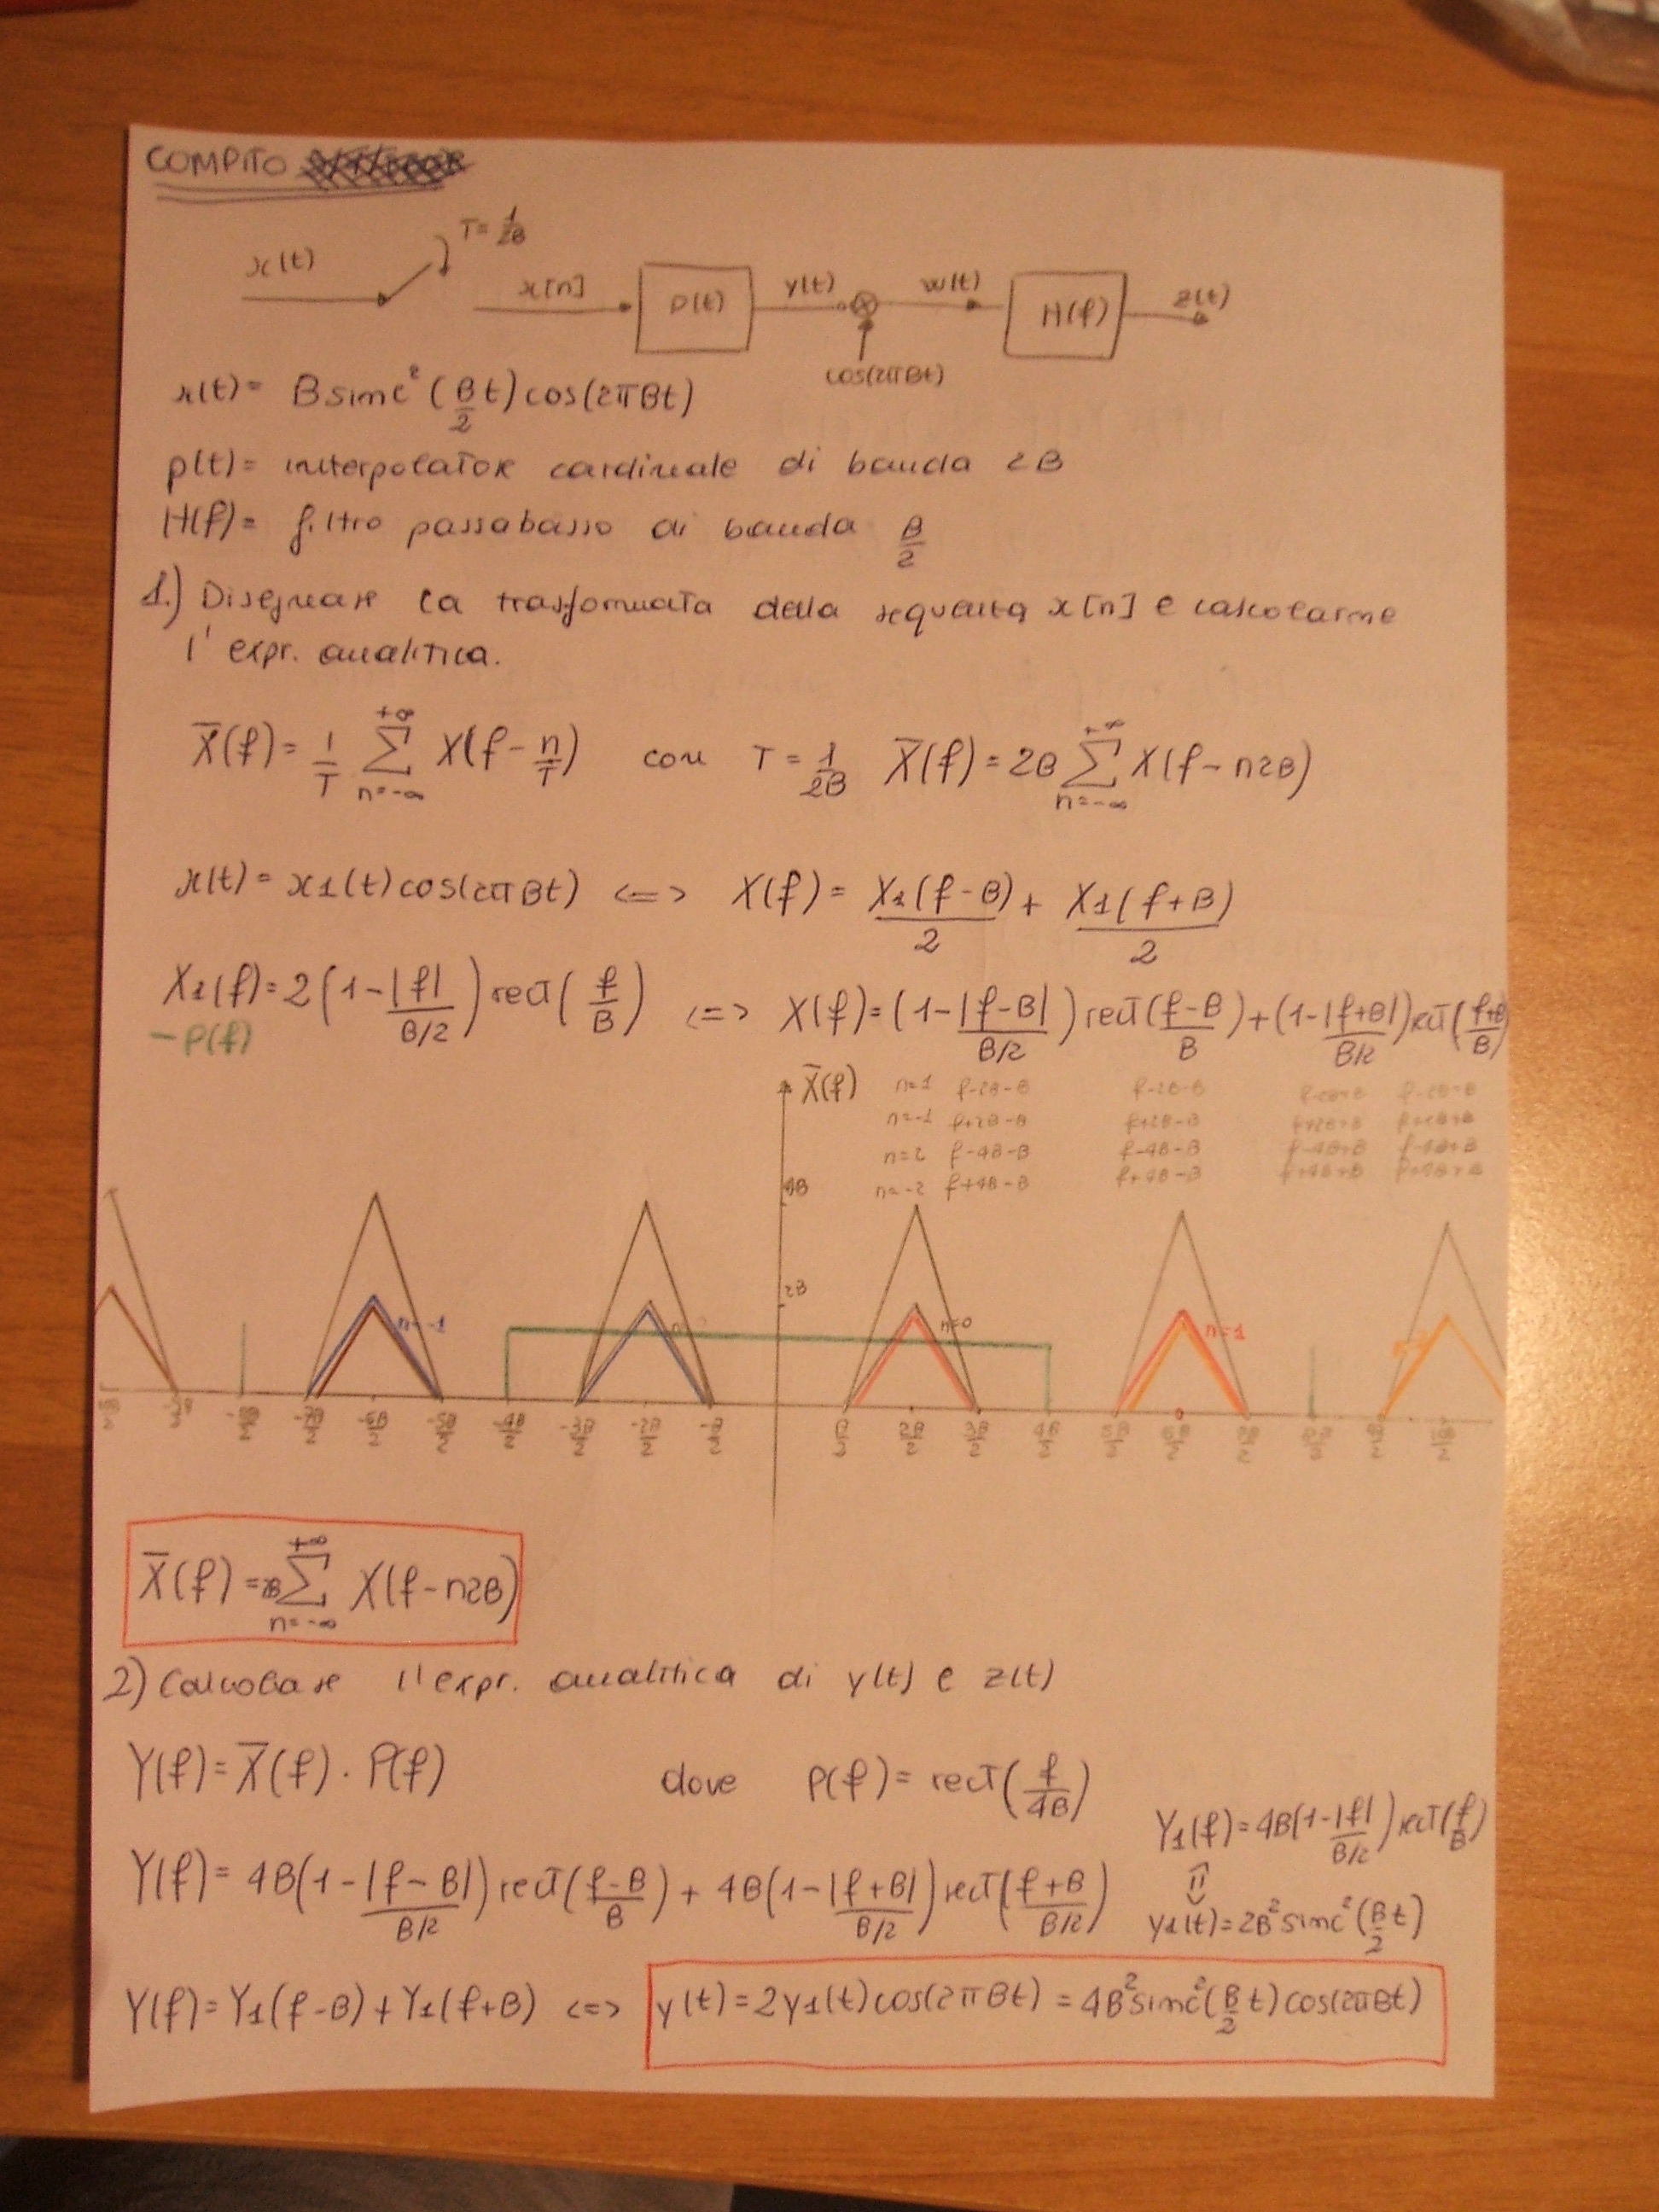 COMPITO
T = 1/2B
x(t) x[n] p(t) y(t) w(t) H(f) z(t)
cos(2πBt)
x(t) = B sinc² (B/2 t) cos(2πBt)
p(t) = interpolatore cardinale di banda 2B
H(f) = filtro passabasso di banda B/2
1.) Disegnare la trasformata della sequenza x[n] e calcolarne
l' expr. analitica.
X̄(f) = 1/T Σ_{n=-∞}^{+∞} X(f - n/T) con T = 1/2B X̄(f) = 2B Σ_{n=-∞}^{+∞} X(f - n2B)
x(t) = x1(t) cos(2πBt) <=> X(f) = X1(f-B)/2 + X1(f+B)/2
X1(f) = 2 (1 - |f|/B/2) rect (f/B) <=> X(f) = (1 - |f-B|/B/2) rect (f-B/B) + (1 - |f+B|/B/2) rect (f+B/B)
- P(f)
X̄(f) n=1 f-2B-B f-2B-B
n=-1 f+2B-B f+2B-B
n=2 f-4B-B f-4B-B
4B n=-2 f+4B-B f+4B-B
2B
n=-1 n=0 n=1
X̄(f) = 2B Σ_{n=-∞}^{+∞} X(f - n2B)
2) Calcolare l' expr. analitica di y(t) e z(t)
Y(f) = X̄(f) · P(f) dove P(f) = rect (f/4B)
Y1(f) = 4B(1 - |f|/B/2) rect (f/B)
Y(f) = 4B(1 - |f-B|/B/2) rect (f-B/B) + 4B(1 - |f+B|/B/2) rect (f+B/B/2)
y1(t) = 2B² sinc² (B/2 t)
Y(f) = Y1(f-B) + Y1(f+B) <=> y(t) = 2y1(t) cos(2πBt) = 4B² sinc² (B/2 t) cos(2πBt)